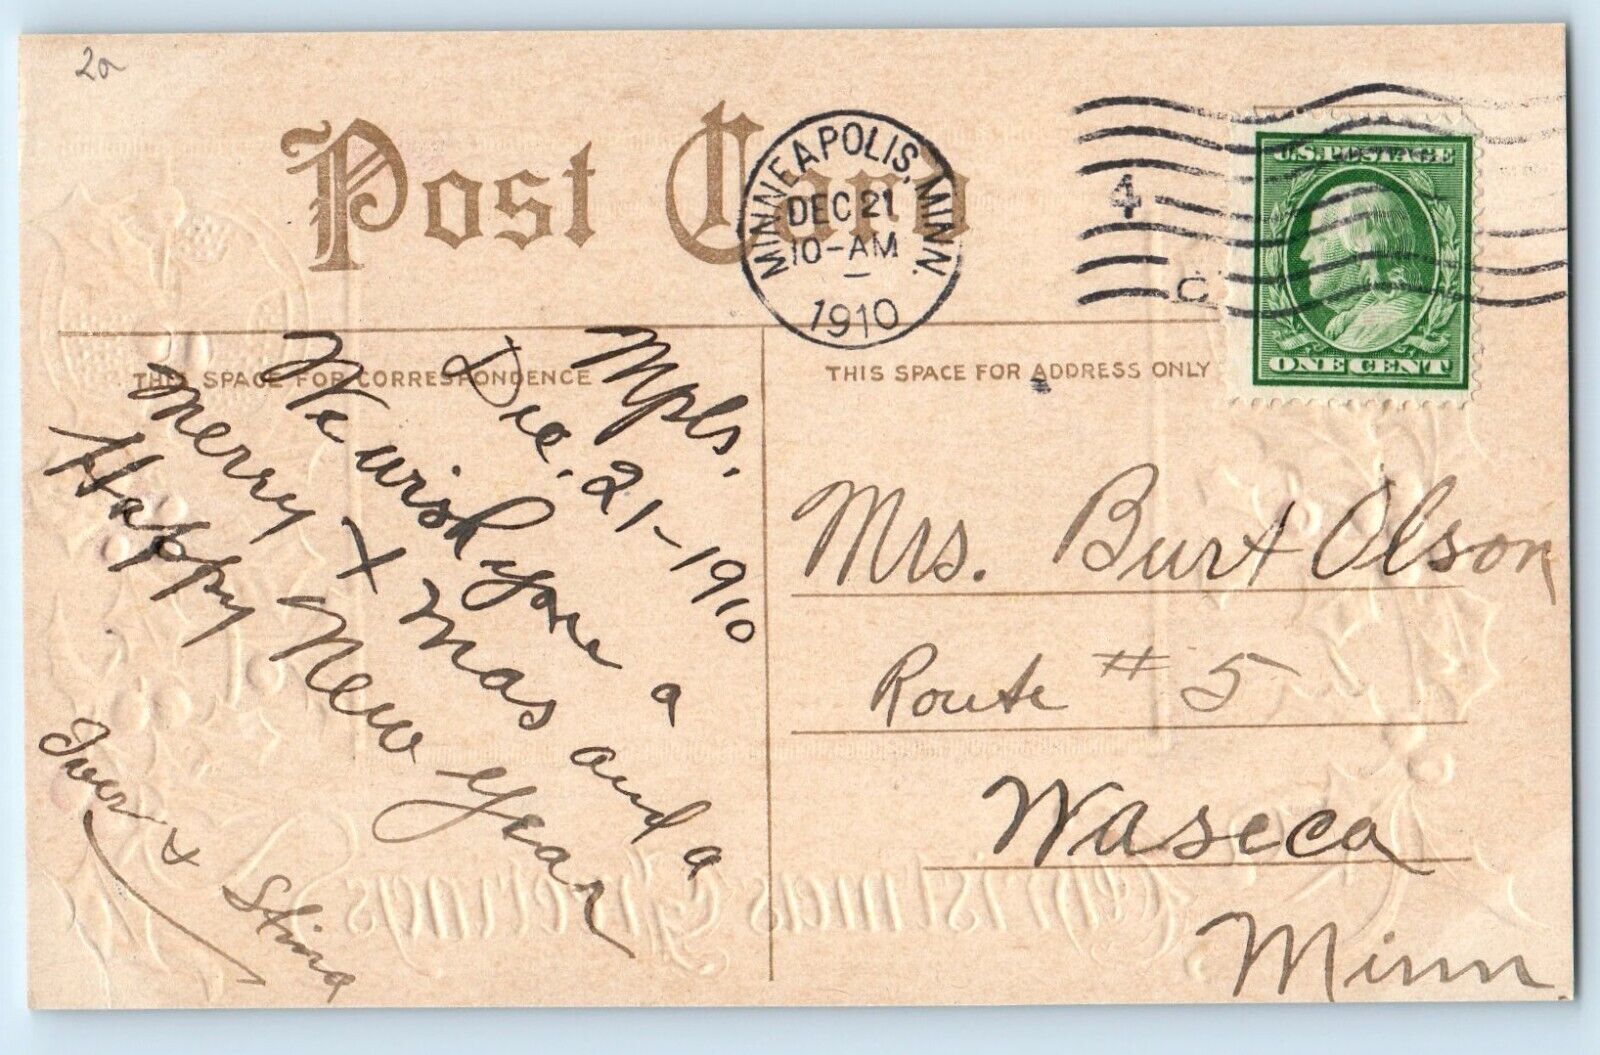 2a
Post Card
MINNEAPOLIS, MINN.
DEC 21
10-AM
1910
4
C
U.S. POSTAGE
ONE CENT
THIS SPACE FOR CORRESPONDENCE
THIS SPACE FOR ADDRESS ONLY
Mpls,
Dec, 21-1910
We wish you a
Merry X mas and a
Happy New Year
Iver + Stina
Mrs. Burt Olson
Route #5
Waseca
Minn.
Christmas Greetings